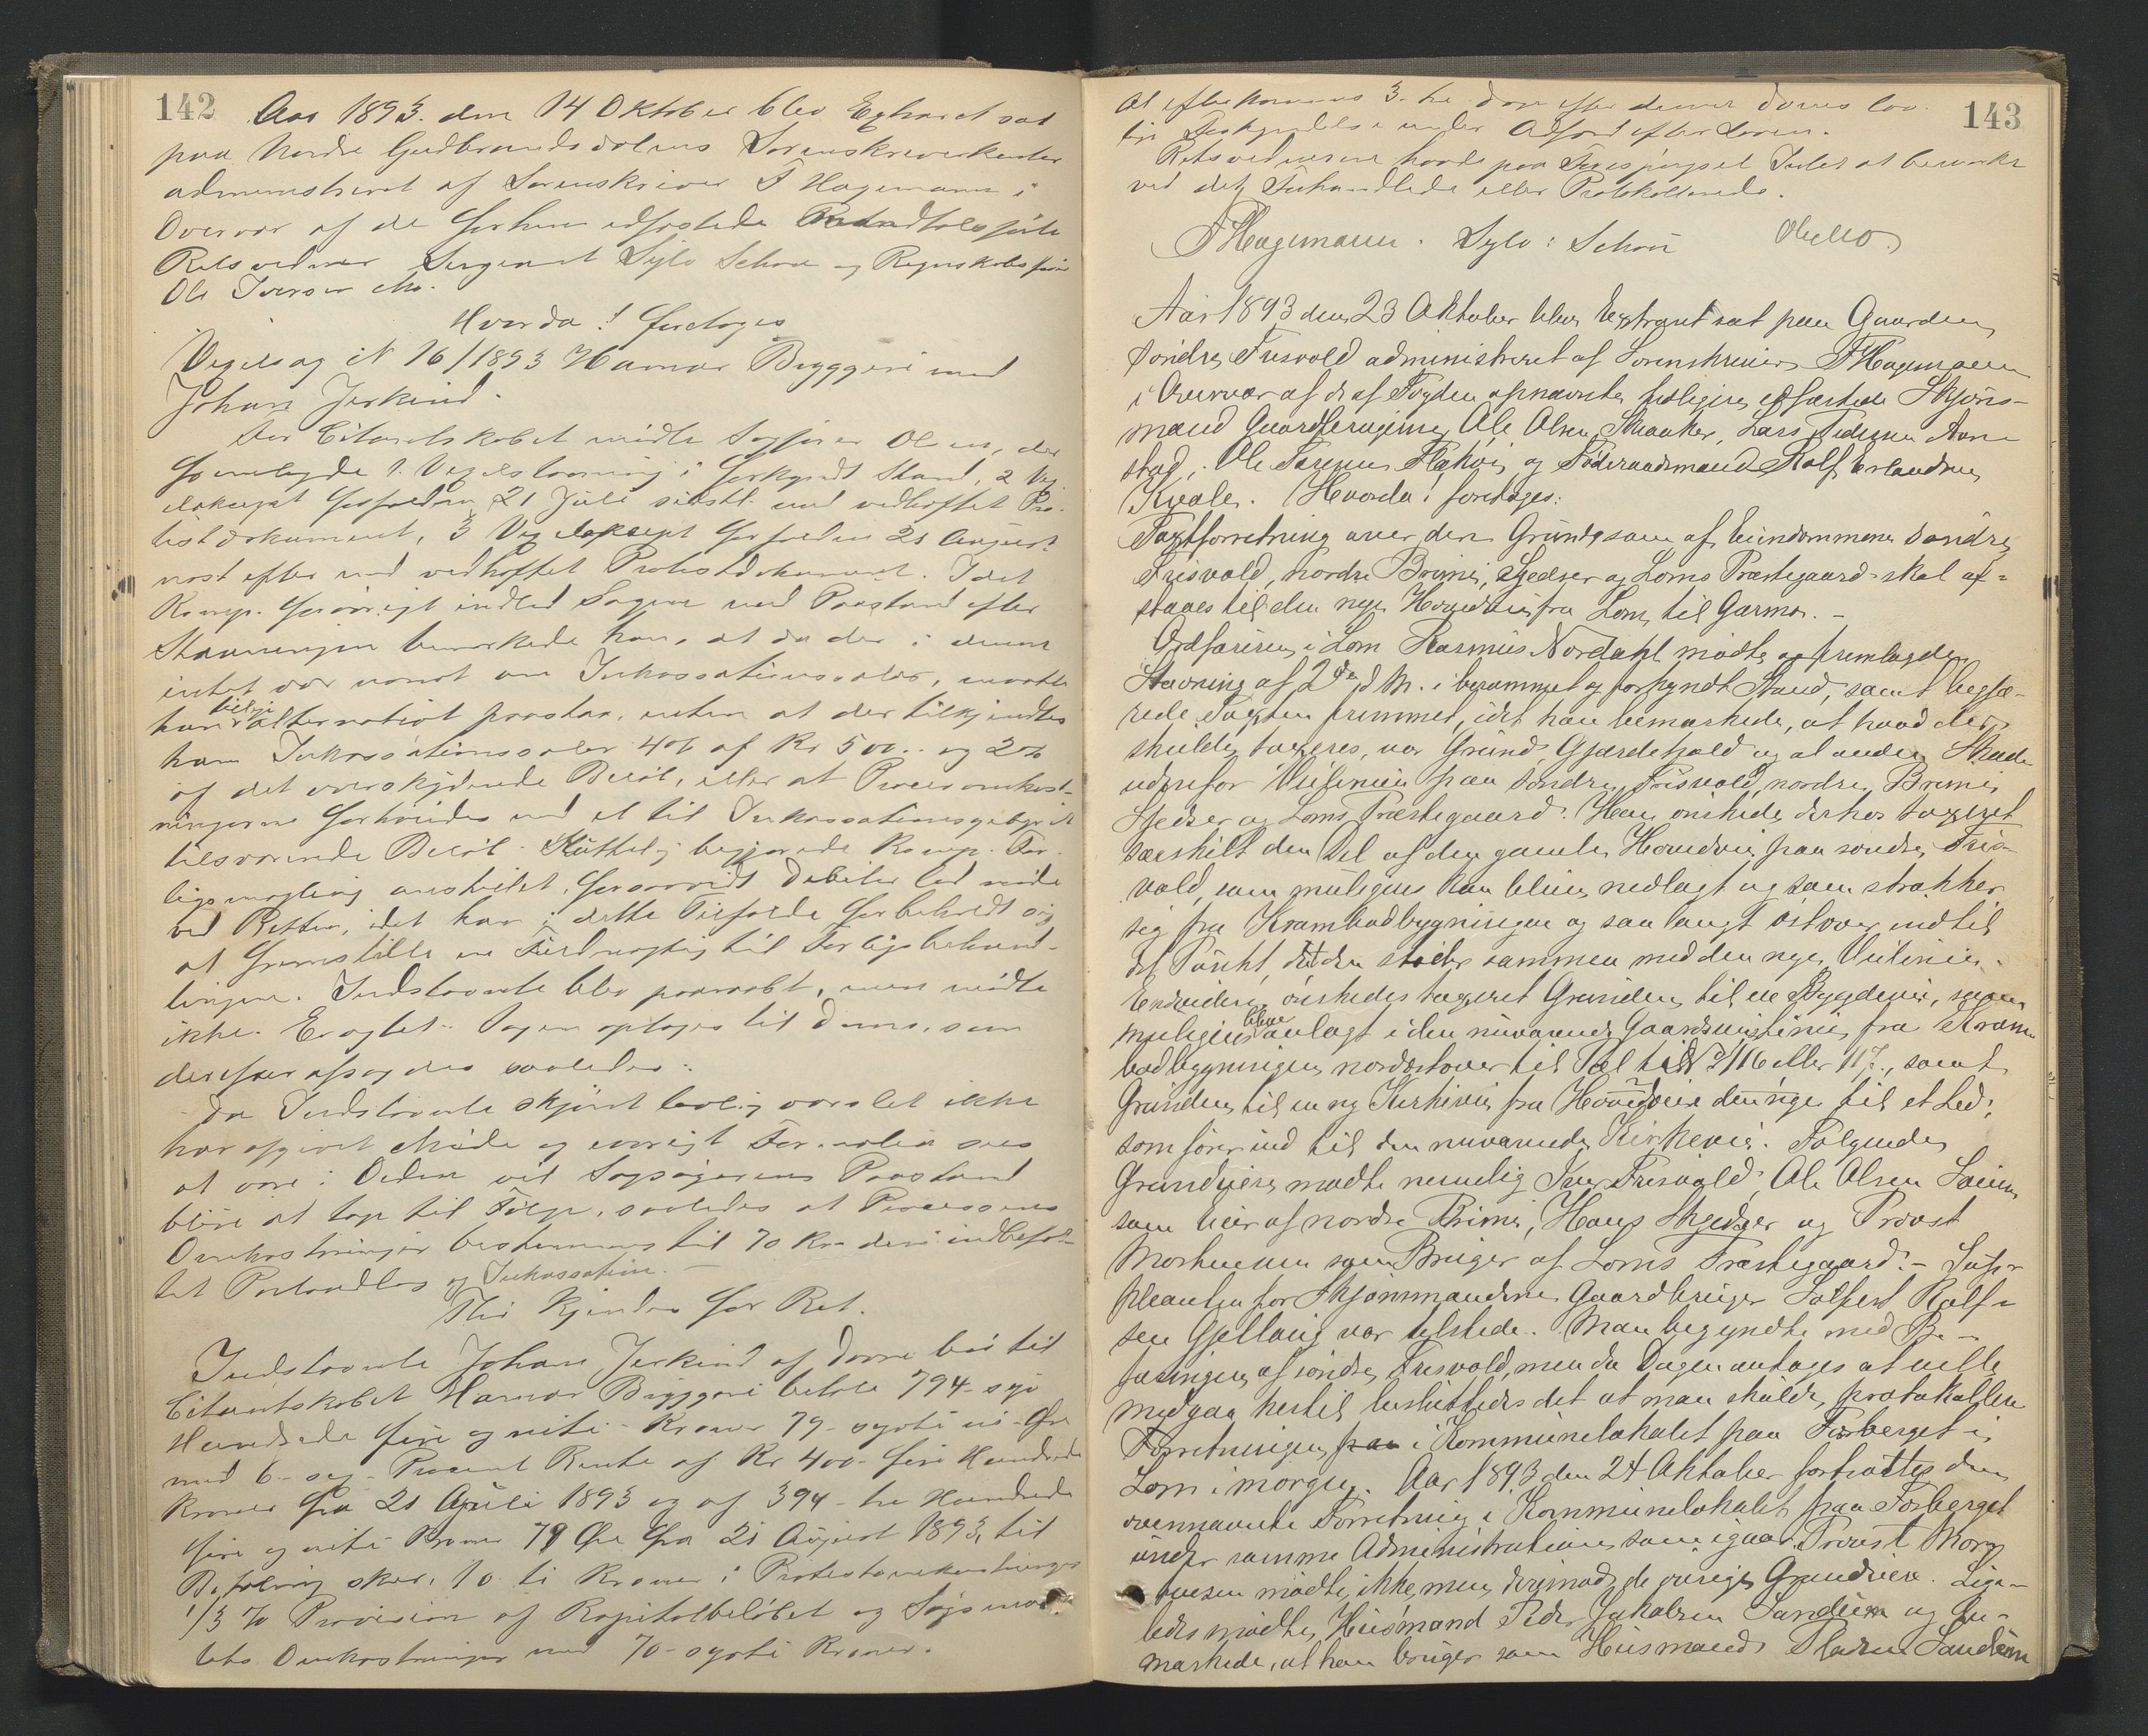 142
Aar 1893. den 14 Oktober blev Extraret sat
paa Nordre Gudbrandsdalens Sorenskriverkontor
administreret af Sorenskriver F Hagemann i
Overvær af de forhen edfæstede
Retsvidner Sergeant Sylv Schou og Regnskabsfører
Ole Iversen Mo.
Hvorda! foretoges
Vexelsag № 16/1893 Hamar Bryggeri mod
Johan Jerkind.
For Citantskabet mødte Sagfører Olsen, der
fremlagde 1. Vexelstævning i forkyndt Stand, 2 Vex-
elaksept forfalden 21 Juli sidstl. med vedhæftet Pro-
testdokument, 3 Vexelaksept forfalden 21 August
næst efter med vedhæftet Protestdokument. Idet
Komp. forøvrigt indlod Sagen med Paastand efter
Stævningen bemærkede han, at da der i denne
intet var nævnt om Inkassationssalær, maatte
han tillige alternativt paastaa, enten at der tilkjendtes
ham Inkassationssalær 4% af Kr 500.. og 2%
af det overskydende Beløb, eller at Procesomkost-
ningerne forhøides med et til Inkassationsgebyret
tilsvarende Beløb. Sluttelig begjærede Komp. For-
ligsmægling anstillet, forsaavidt Debitor lod møde
ved Retten, idet han i dette Tilfælde forbeholdt sig
at fremstille en Fuldmægtig til Forligsbehand-
lingen. Indstævnte blev paaraabt, men mødte
ikke. Eragtet: Sagen optages til Doms, som
derefter afsagdes saaledes:
Da Indstævnte skjønt lovlig varslet ikke
har afgivet Møde og øvrigt Formalia sees
at være i Orden vil Sagsøgerens Paastand
blive at tage til Følge, saaledes at Processens
Omkostninger bestemmes til 70 Kr deri indbefat-
tet Portoudlæg og Inkassation.
Thi kjendes for Ret.
Indstævnte Johan Jerkind af Dovre bør til
Citantskabet Hamar Bryggeri betale 794 - syv
Hundrede fire og niti - Kroner 79 - sytti ni - Øre
med 6 - sex - Procent Rente af Kr 400 - fire Hundrede
Kroner fra 21 Juli 1893 og af 394 - tre Hundrede
fire og niti Kroner 79 Øre fra 21 August 1893, til
Betaling sker, 10 ti Kroner i Protestomkostninger
1/3 % Provision af Kapitalbeløbet og Søgsmaa-
lets Omkostninger med 70 - sytti Kroner.
143
At efterkommes 3. tre Dage efter denne Doms lov-
lige Forkyndelse under Adfærd efter Loven.
Retsvidnerne havde paa Forespørgsel Intet at bemærke
ved det Forhandlede eller Protokollerede.
FHagemann. Sylv: Schou OIMo.
Aar 1893 den 23 Oktober blev Extraret sat paa Gaarden
søndre Frisvold administreret af Sorenskriver FHagemann
i Overvær af de af Fogden opnævnte tidligere edfæstede Skjøns-
mænd Gaardbrugerne Ole Olsen Skaaker, Lars Arne
stad, Ole og Føderaadsmand Rolf Erlandsen
Kvale. Hvorda! foretoges:
Taxtforretning over den Grund som af Eiendommene søndre
Frisvold, nordre Brimi, Skjedser og Loms Præstegaard skal af-
staaes til den nye Hovedvei fra Lom til Garmo. -
Ordføreren i Lom Rasmus Nordahl mødte og fremlagde
Stævning af 2den d. M. i berammet og forkyndt Stand, samt begjæ-
rede Taxten fremmet, idet han bemærkede, at hvad der
skulde taxeres, var Grund, Gjærdehold og al anden Skade
udenfor Veilinien paa søndre Frisvold, nordre Brimi,
Skjedser og Loms Præstegaard. Han ønskede derhos taxeret
særskilt den Del af den gamle Hovedvei paa søndre Fris-
vold, som muligens kan blive nedlagt og som strækker
sig fra Krambodbygningen og saa langt østover indtil
det Punkt, den støder sammen med den nye Veilinie.
Endvidere ønskedes taxeret Grunden til en Bygdevei, som
muligens blive anlagt i den nuværende Gaardsveislinie fra Kram-
bodbygningen nordøstover til Pæl № 116 eller 117, samt
Grunden til en ny Kirkevei fra Hovedveien den nye til et Led,
som fører ind til den nuværende Kirkevei. Følgende
Grundeiere mødte nemlig Iver Frisvold, Ole Olsen
som Eier af nordre Brimi, Hans Skjedser og Provst
som Bruger af Loms Præstegaard. - Sup-
pleanten for Skjønsmændene Gaardbruger Rolf-
sen var tilstede. Man begyndte med Be-
faringen af søndre Frisvold, men da Dagen antoges at ville
medgaa hertil besluttedes det at man skulde protokollere
Forretningen paa i Kommunelokalet paa Fosberget i
Lom i morgen. Aar 1893 den 24 Oktober fortsattes den
ovennævnte Forretning i Kommunelokalet paa Fosberget
under samme Administration som igaar. Provst
mødte ikke, men derimod de øvrige Grundeiere. Lige-
ledes mødte Husmand Peder Jakobsen Sandeien og be-
mærkede, at han bruger som Husmand Pladsen Sandeien